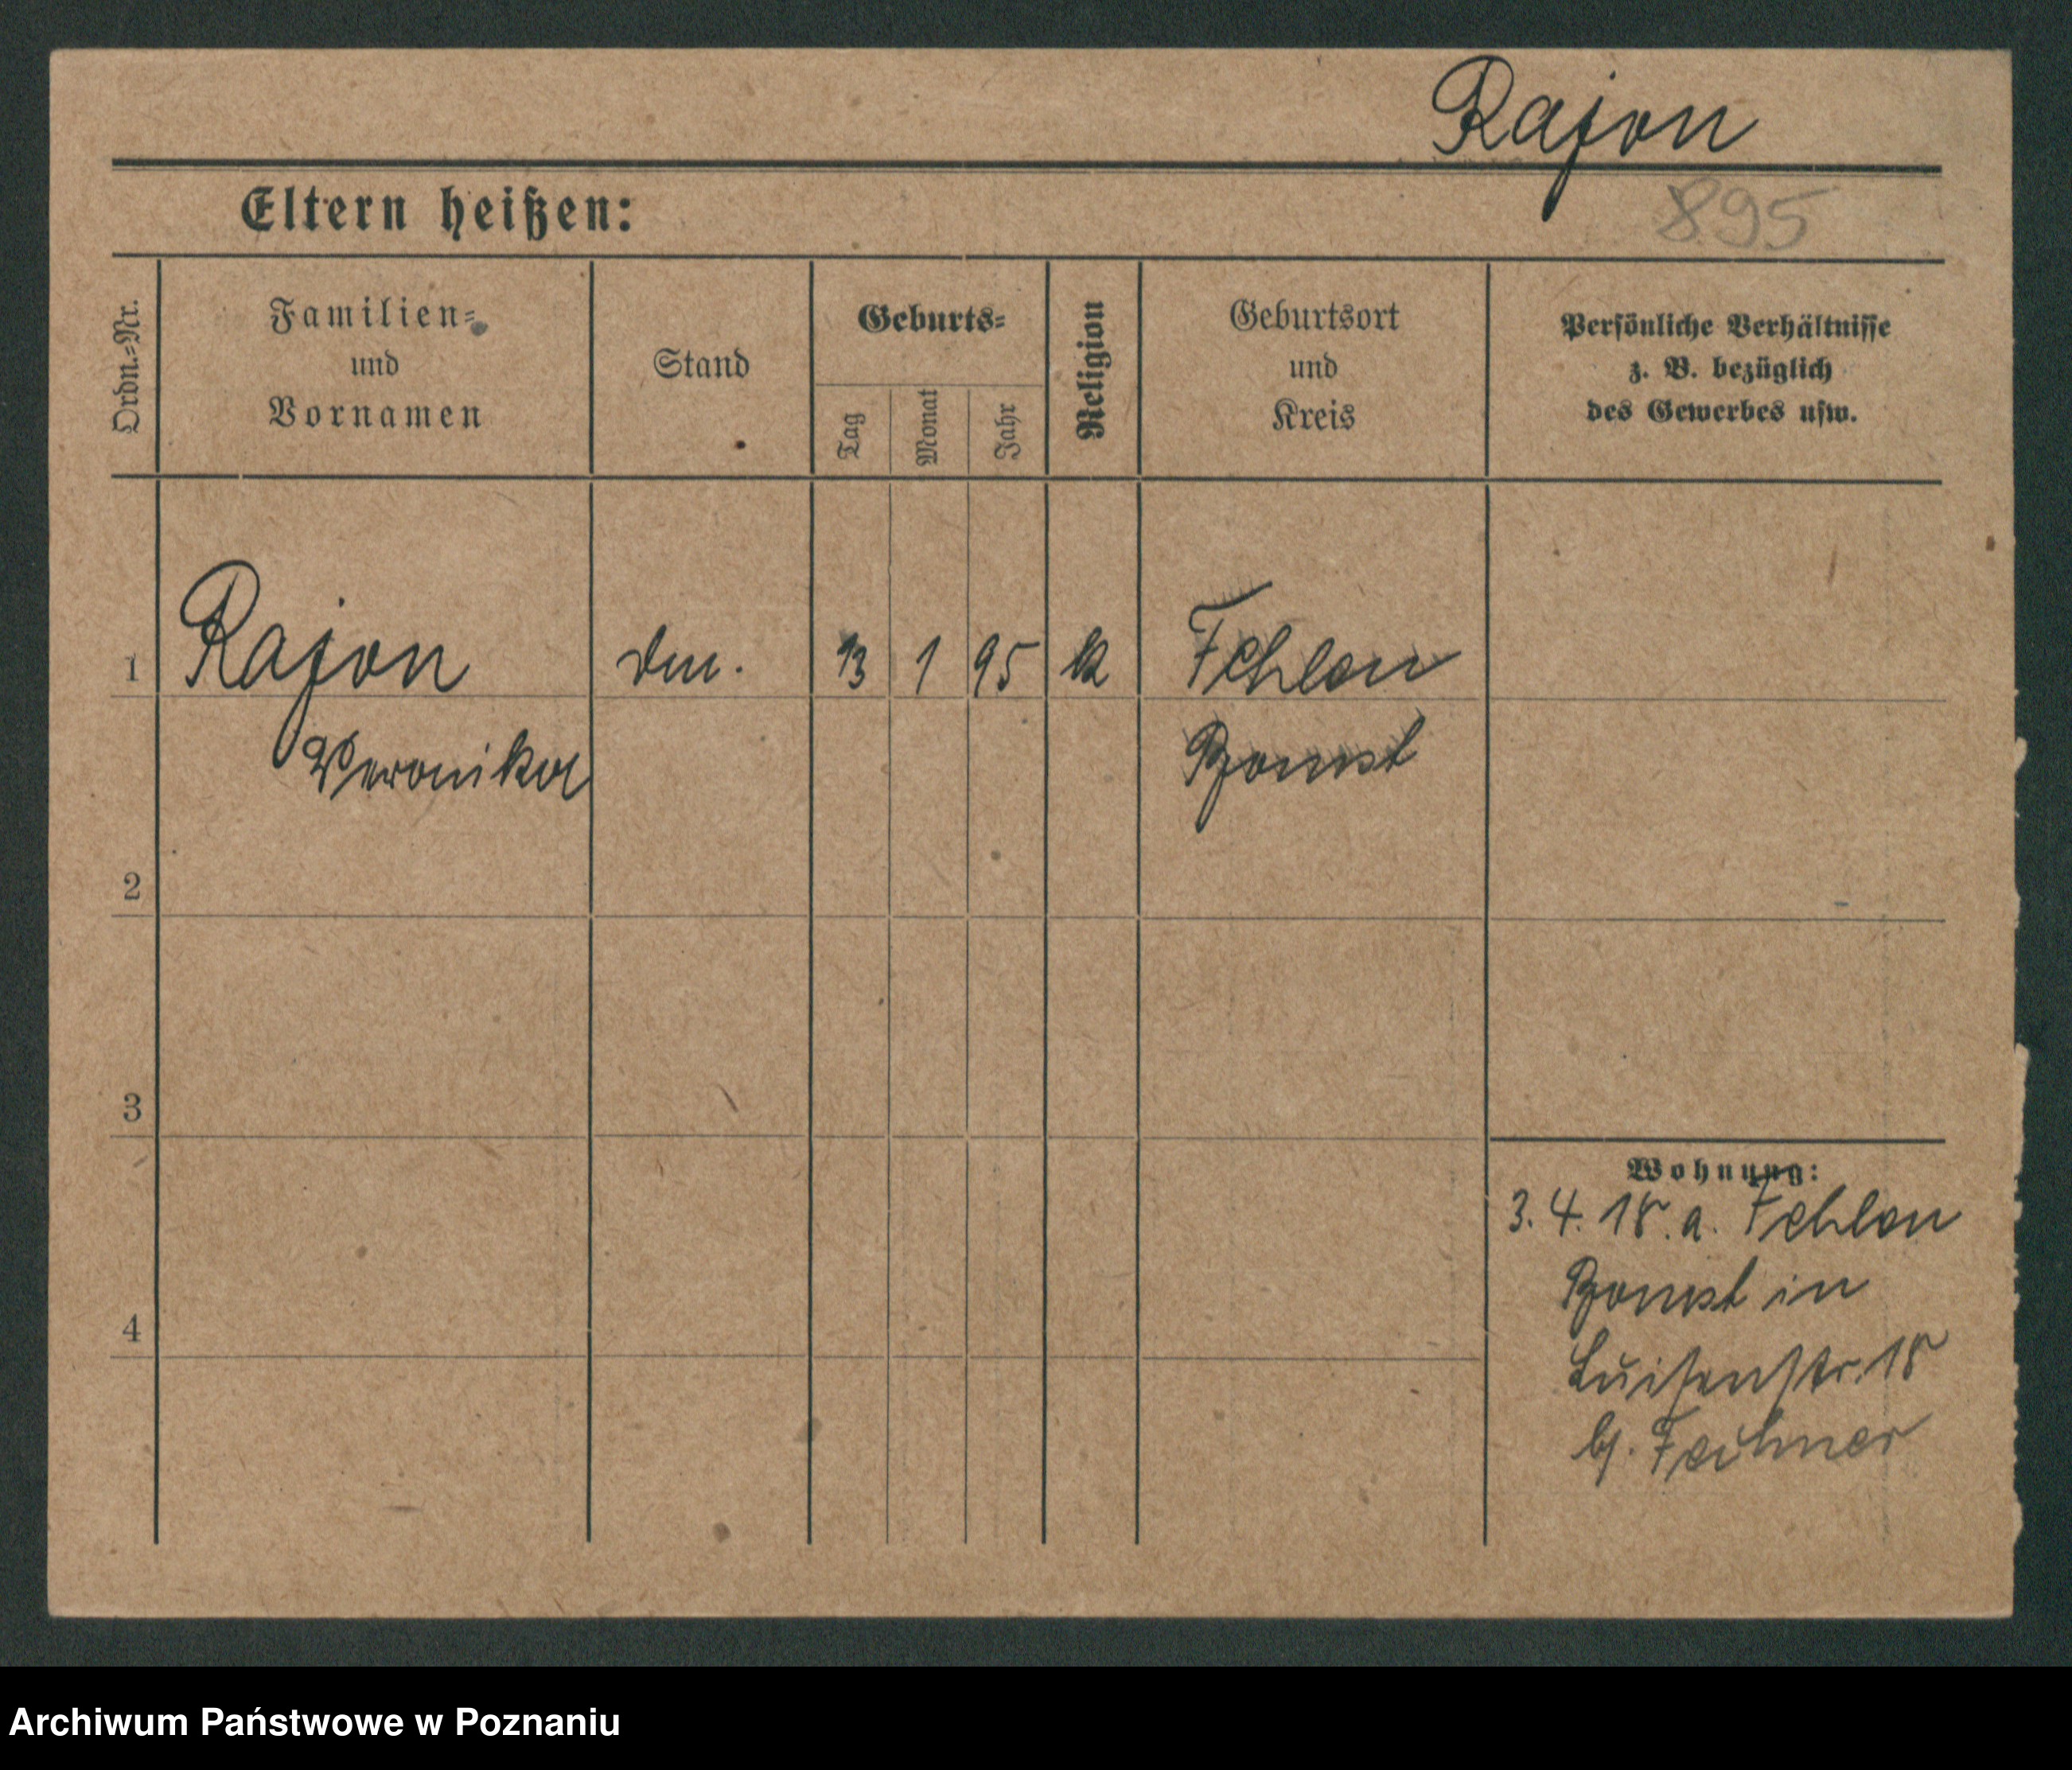 Rajon
895
Eltern heißen:
Ordn.=Nr.
Familien=
und
Vornamen
Stand
Geburts=
Tag
Monat
Jahr
Religion
Geburtsort
und
Kreis
Persönliche Verhältnisse
z. B. bezüglich
des Gewerbes usw.
1 Rajon 13 1 95 k Fehlen
Veronika Bomst
2
3
4
Wohnung:
3. 4. 18. a. Fehlen
Bomst in
Luisenstr. 18
b/. Fechner
Archiwum Państwowe w Poznaniu